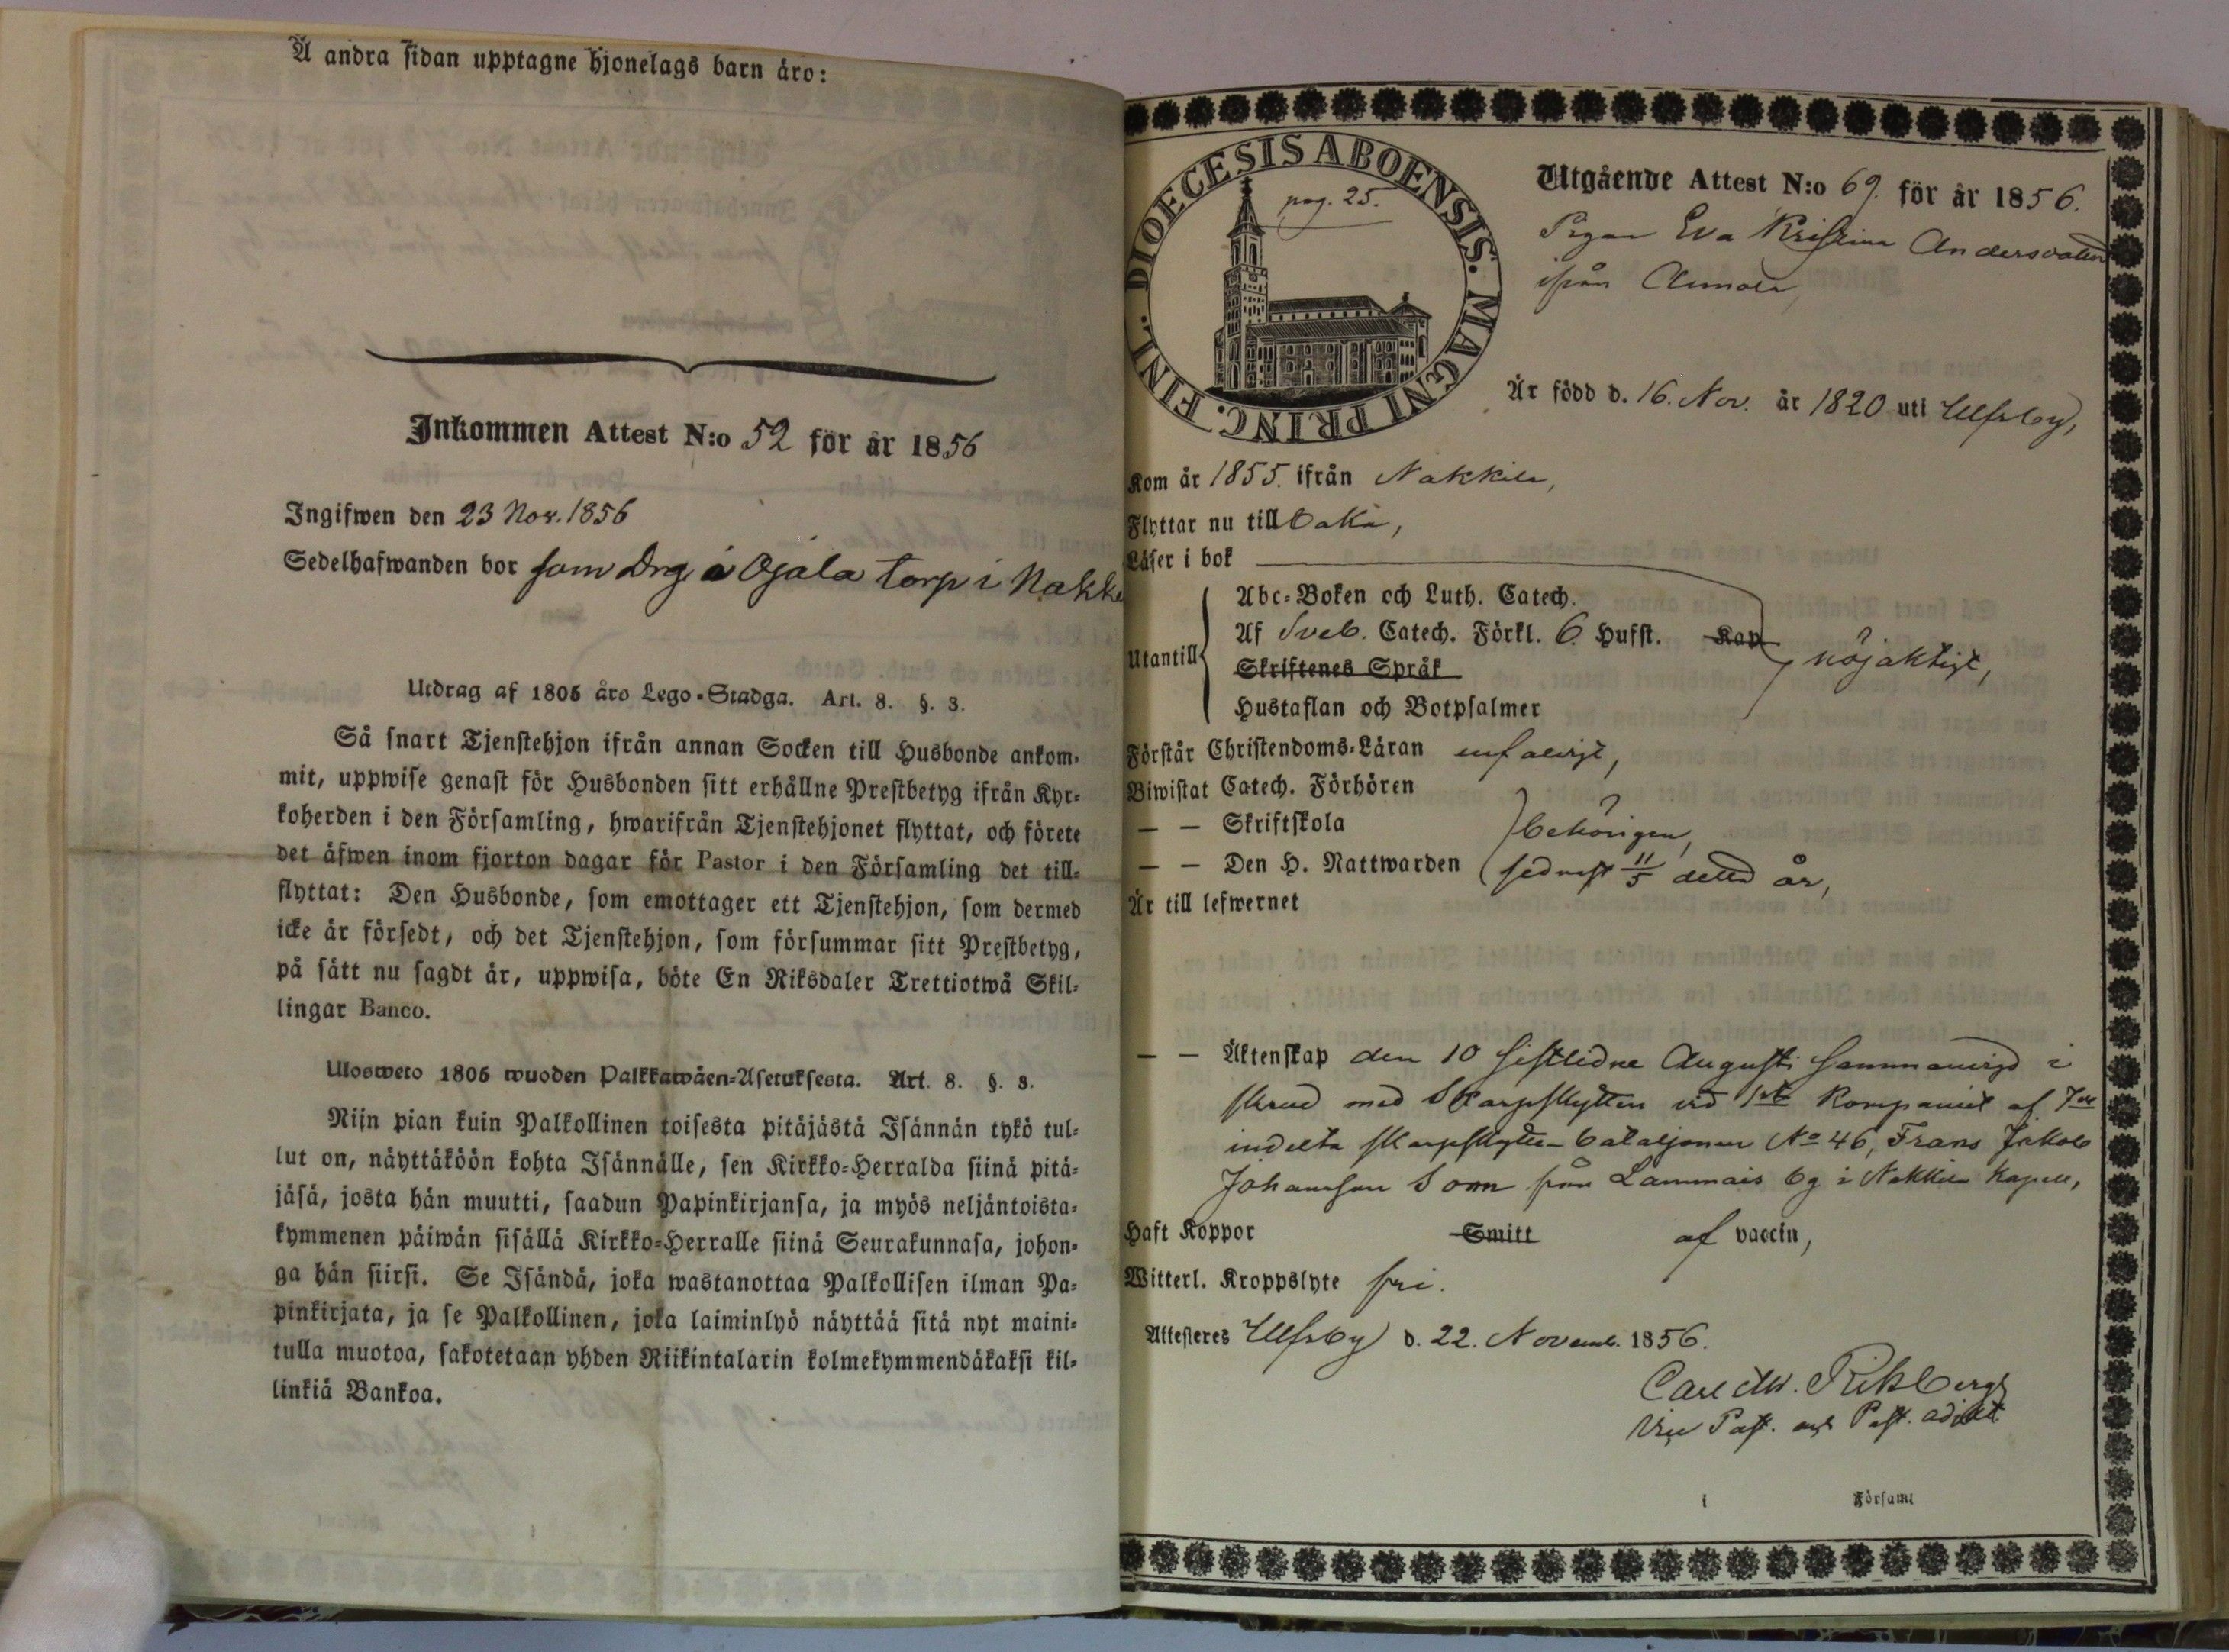 Å andra sidan upptagne hjonelags barn äro:
Inkommen Attest N:o 52 för år 1856
Ingifwen den 23 Nov. 1856
Sedelhafwanden bor som Drg å Ojala torp i Nakki
Utdrag af 1805 års Lego-Stadga. Art. 8. §. 3.
Så snart Tjenstehjon ifrån annan Socken till Husbonde ankom-
mit, uppwise genast för Husbonden sitt erhållne Prestbetyg ifrån Kyr-
koherden i den Församling, hwarifrån Tjenstehjonet flyttat, och förete
det äfwen inom fjorton dagar för Pastor i den Församling det till-
flyttat: Den Husbonde, som emottager ett Tjenstehjon, som dermed
icke är försedt, och det Tjenstehjon, som försummar sitt Prestbetyg,
på sätt nu sagdt är, uppwisa, böte En Riksdaler Trettiotwå Skil-
lingar Banco.
Ulosweto 1805 wuoden Palkkawäen-Asetuksesta. Art. 8. §. 3.
Niin pian kuin Palkollinen toisesta pitäjästä Isännän tykö tul-
lut on, näyttäköön kohta Isännälle, sen Kirkko-Herralda siinä pitä-
jäsä, josta hän muutti, saadun Papinkirjansa, ja myös neljäntoista-
kymmenen päiwän sisällä Kirkko-Herralle siinä Seurakunnasa, johon-
ga hän siirsi. Se Isändä, joka wastanottaa Palkollisen ilman Pa-
pinkirjata, ja se Palkollinen, joka laiminlyö näyttää sitä nyt maini-
tulla muotoa, sakotetaan yhden Riikintalarin kolmekymmendäkaksi kil-
linkiä Bankoa.
DIOECESIS ABOENSIS. MAGNI PRINC. FINL.
pag. 25.
Utgående Attest N:o 69. för år 1856.
Pigan Eva Kristina Andersdotter
ifrån
Är född d. 16. Nov. år 1820 uti Ulfsby,
Kom år 1855. ifrån Nakkila,
Flyttar nu tillbaka,
Läser i bok
Utantill
Abc-Boken och Luth. Catech.
Af Sveb. Catech. Förkl. 6 Hufst. Kap
Skriftenes Språk
nöjaktigt,
Hustaflan och Botpsalmer
Förstår Christendoms-Läran enfaldigt,
Biwistat Catech. Förhören
— — Skriftskola
behörigen,
— — Den H. Nattwarden sednast 11/5 detta år,
Är till lefwernet
— — Äktenskap den 10 sistledne Augusti sammanvigd i
skrud med Skarpskytten vid 1sta Kompaniet af 7de
indelta skarpskytte-bataljonen No 46, Frans Jakob
Johansson Som från Lammais by i Nakkila Kapell,
Haft Koppor Smitt af vaccin,
Witterl. Kroppslyte fri.
Attesteres Ulfsby d. 22. Novemb. 1856.
Carl Riksberg
Vice Past. Past. adjunkt
i Församl